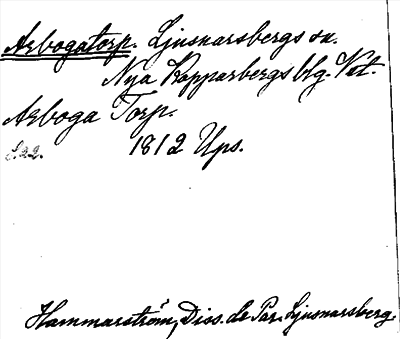 Arbogatorp. Ljusnarsbergs sn.
Nya Kopparbergs blg. Vst.
Arboga Torp.
S. 22. 1812 Ups.
Hammarström, Diss. de Par. Ljusnarsberg.